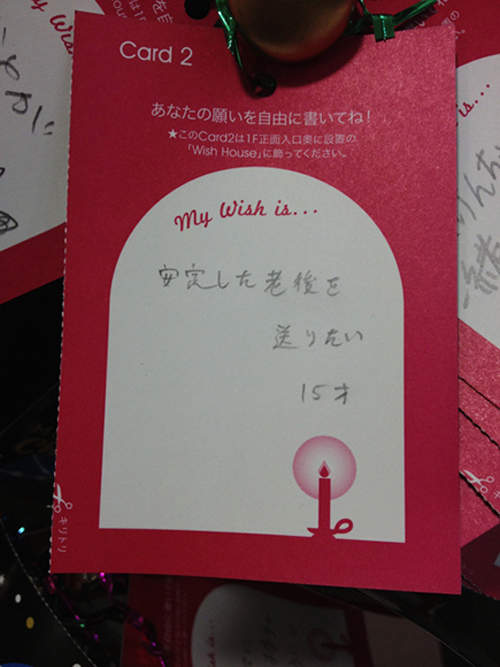 Card 2
あなたの願いを自由に書いてね!
★このCard2は1F正面入口奥に設置の
「Wish House」に飾ってください。
My Wish is...
安定した老後を
送りたい
15才
キリトリ
My Wis
is...